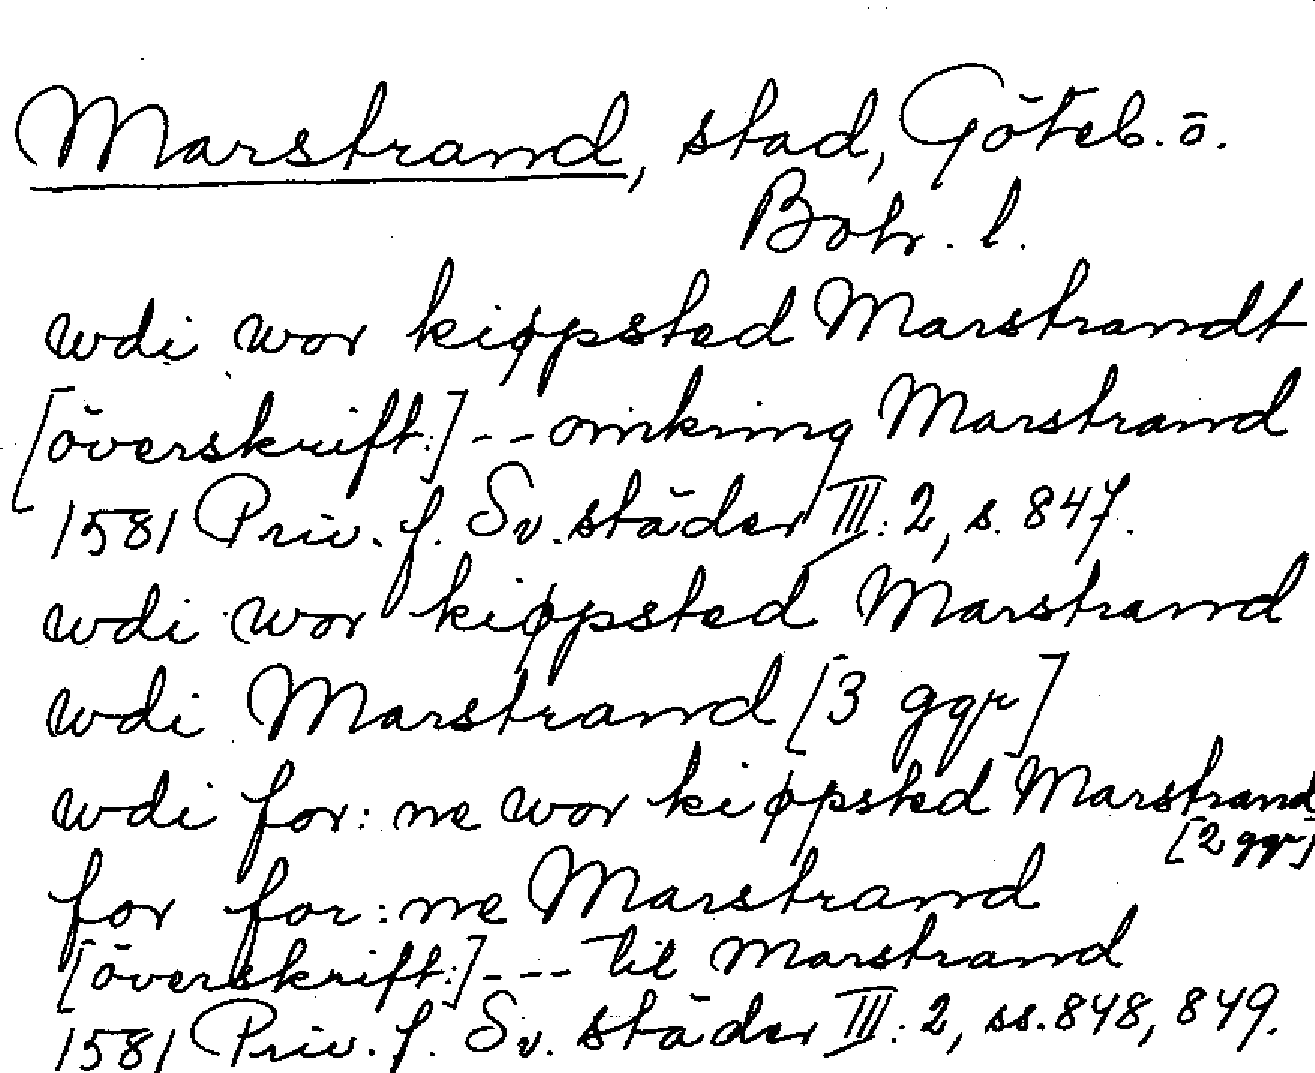 Marstrand, stad, Göteb. o.
Boh. l.
wdi wor kiøpsted Marstrandt
[överskrift:] -- omkring Marstrand
1581 Priv. f. Sv. städer III: 2, s. 847.
wdi wor kiøpsted Marstrand
wdi Marstrand [3 ggr]
wdi for:ne wor kiøpsted Marstrand
[2 ggr]
for for:ne Marstrand
[överskrift:] --- til Marstrand
1581 Priv. f. Sv. städer III: 2, ss. 848, 849.